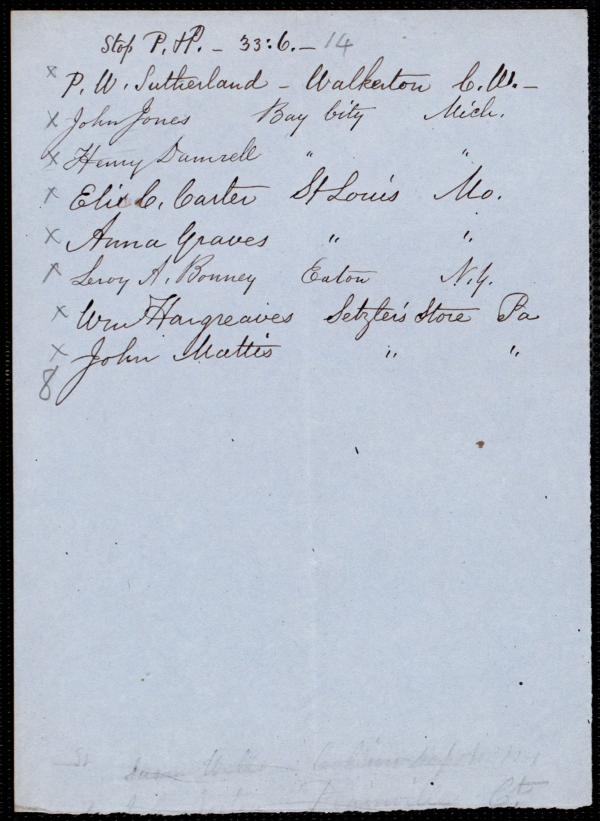 Stop P. Hd. - 33:6. - 14
x P. W. Sutherland - Walkerton C. W. -
x John Jones Bay City Mich.
x Henry Damrell " "
x Eli C. Carter St Louis Mo.
x Anna Graves " "
x Leroy A. Bonney Eaton N.Y.
x Wm Hargreaves Setzler's Store Pa
x John Mattis " "
8
Ct.